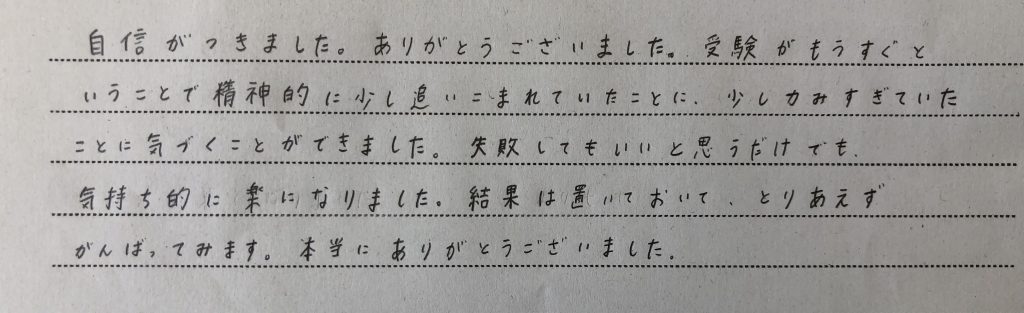 自信がつきました。ありがとうございました。受験がもうすぐと
いうことで精神的に少し追いこまれていたことに、少し力みすぎていた
ことに気づくことができました。失敗してもいいと思うだけでも、
気持ち的に楽になりました。結果は置いておいて、とりあえず
がんばってみます。本当にありがとうございました。